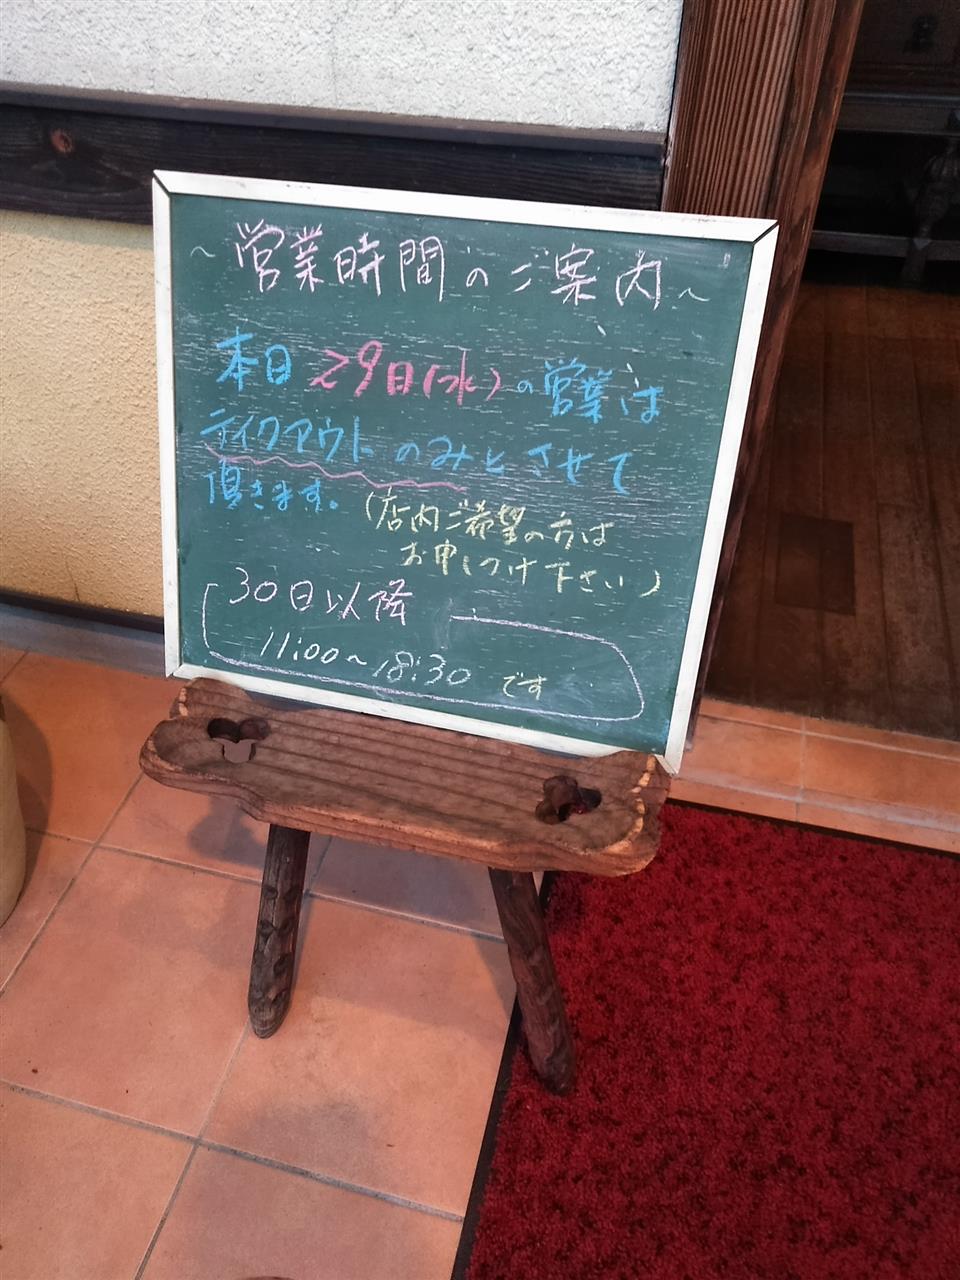 ～営業時間のご案内～
本日29日(水)の営業は
テイクアウトのみとさせて
頂きます。
(店内ご希望の方は
お申しつけ下さい)
30日以降
11:00～18:30 です